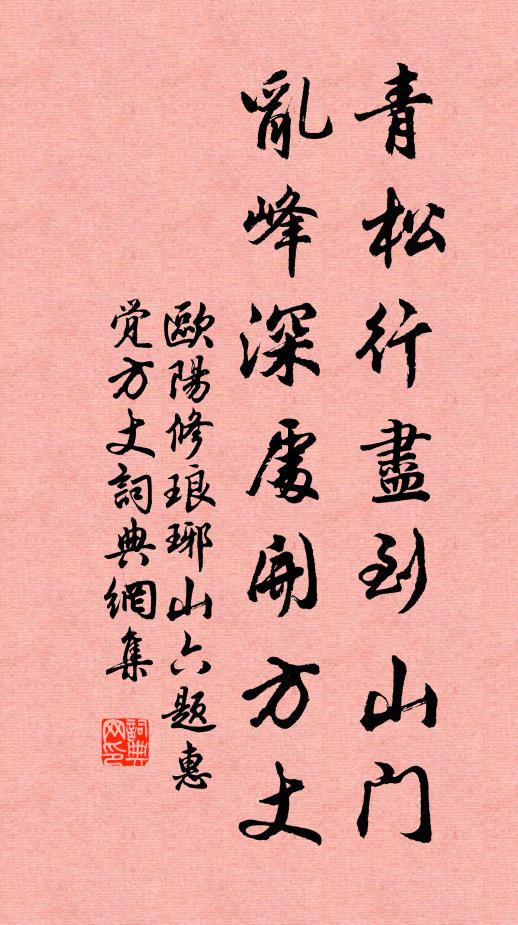 青松行盡到山門
亂峰深處開方丈
歐陽修琅琊山六題惠
覚方丈詞典網集
詞典網印